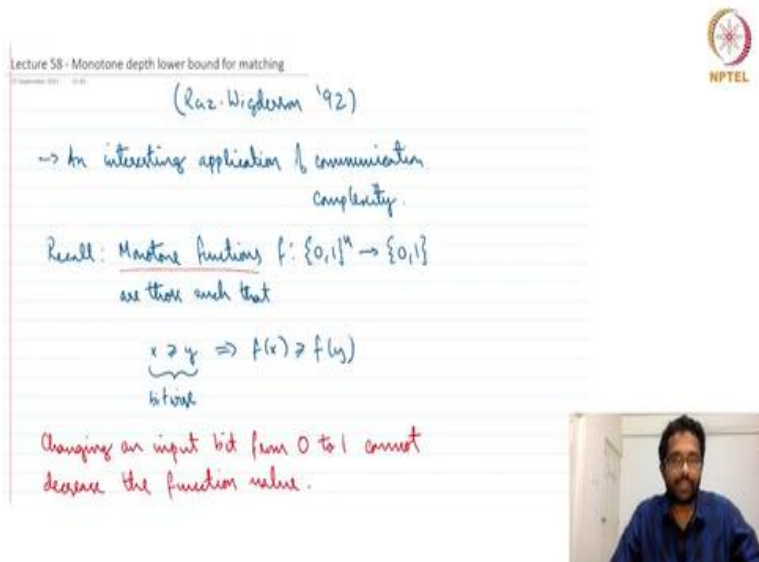 Lecture 58 - Monotone depth lower bound for matching
NPTEL
(Raz-Wigderson '92)
→ An interesting application of communication
complexity.
Recall: Monotone functions f: {0,1}ⁿ → {0,1}
are those such that
x ≥ y ⇒ f(x) ≥ f(y)
bitwise
Changing an input bit from 0 to 1 cannot
decrease the function value.